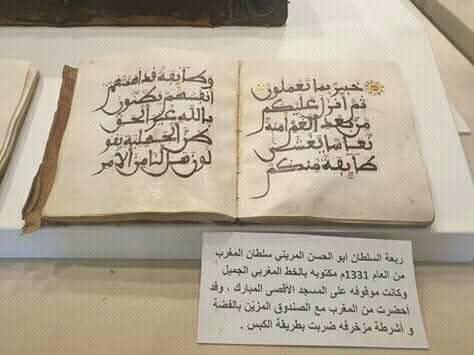 خبير بما تعملون
ثم انزل عليكم
من بعد الغم امنة
نعاسا يغشى
طايفة منكم
وطايفة قد اهمتهم
انفسهم يظنون
بالله غير الحق
ظن الجهلية يقو
لون هل لنا من الامر
ربعة السلطان ابو الحسن المريني سلطان المغرب
من العام 1331م مكتوبه بالخط المغربي الجميل
وكانت موقوفه على المسجد الأقصى المبارك ، وقد
أحضرت من المغرب مع الصندوق المزيّن بالفضة
و أشرطة مزخرفه ضربت بطريقة الكبس .